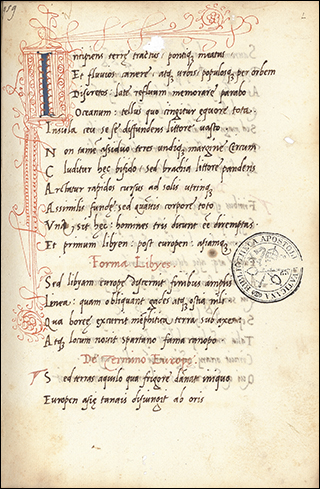 Incipiens terre tractus, pontiq; meatus
Et fluvios canere, atq; urbis populosq; per orbem
Discretos: late refluum memorare parabo
Oceanum: tellus quo cingitur equore tota.
Insula ceu se se diffundens littore vasto
Non tamē assiduo teres undiq; margine cercum
Cluditur hęc bifido: sed brachia littore pandens
Arctatur rapidos cursus ad solis utrinq;
Assimilis fundę sed quāvis corpore toto
Una sit hęc: homines tris dicunt eē diremptas:
Et primum libyen: post europen: asiamq;
Forma Libyes.
Sed libyam europę discernit finibus amplis
Linea: quam obliquant gades atq; ostia nili
Qua boreę excurrit memphitica terra sub axem:
Atq; locum novit spartano fama canopo
De Termino Europę.
Sed terras aquilo qua frigore dānat iniquo
Europen asię tanais disiungit ab oris